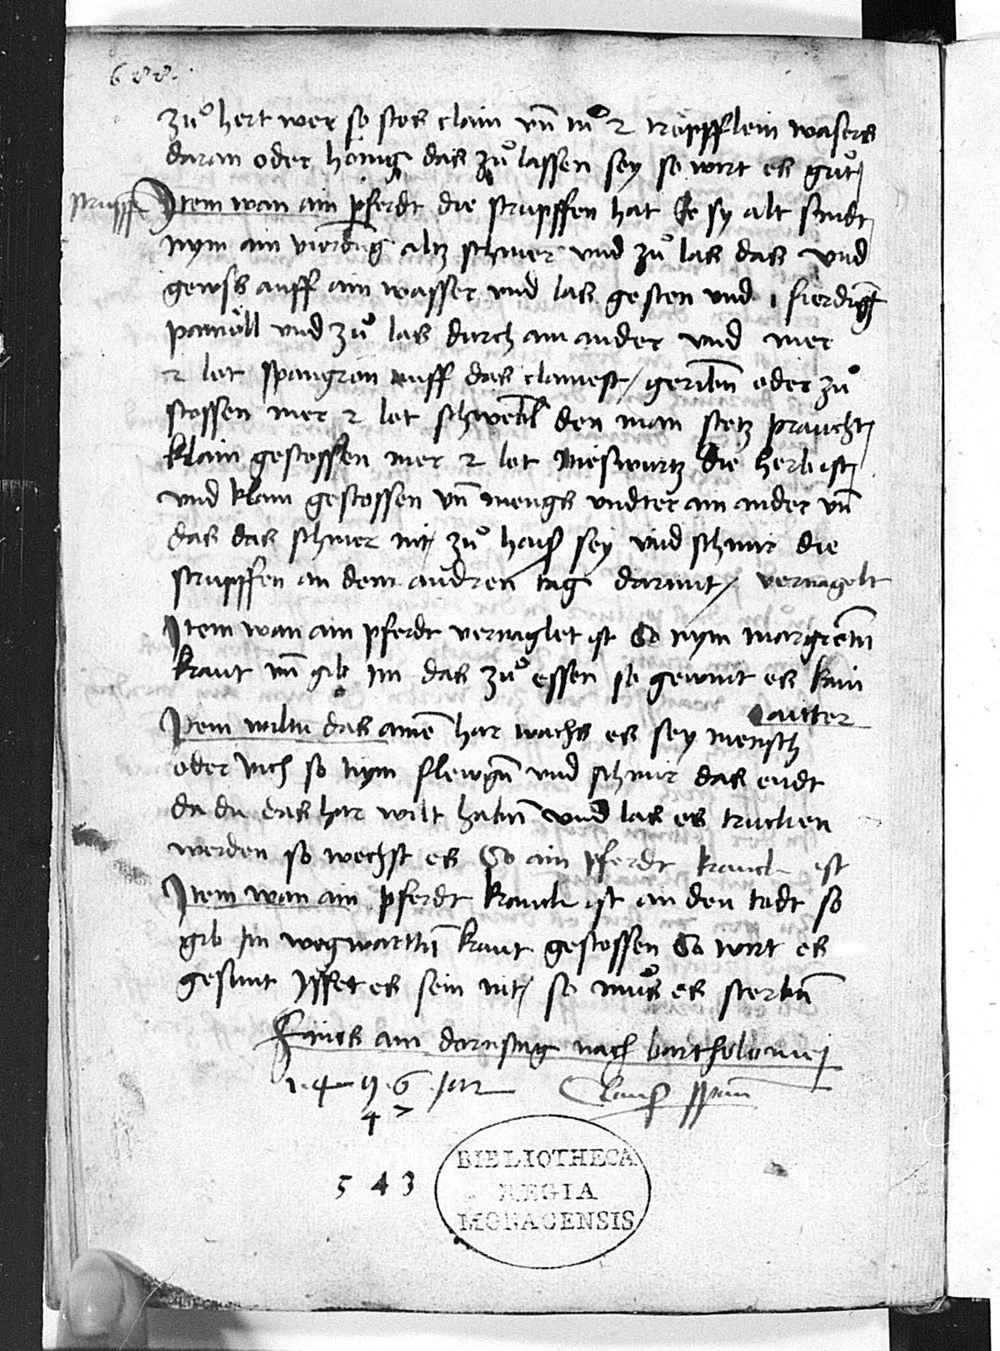 zů hert wer so stos clain vn̄ tů 2 tröpfflein wasers
daran oder hönig das zů lassen sey so wirt es gůt
strupffē
Item wan ain pferdt die strupffen hat Ee sy alt sindt
nym ain vierdūg altz schmer vnd zů las das vnd
gewss auff ain wasser vnd las gesten vnd 1 fierdigt̄
pamöll vnd zů las durch ain ander vnd mer
2 lot spangrön auff das clainest geribn̄ oder zů
stossen mer 2 lot schwebl̄ den man stetz praucht
klain gestossen mer 2 lot Nieswurtz die herb ist
vnd klain gestossen vn̄ mengs vndter ain ander vn̄
das das schmer nit zů hais sey vnd schmir die
strupffen an dem andren tag darmit vernagelt
Item wan ain pferdt vernaglet ist So nym
kraut vn̄ gib im das zů essen so gewint es kain
aitter
Item wiltu das ainē har wachs es sey mensch
oder vich so nym vnd schmir das endt
da du das har wilt habn̄ vnd las es trucken
werden so wechst es So ain pferdt kranck ist
Item wan ain pferdt kranck ist an den todt so
gib im wegwartn̄ kraut gestossen So wirt es
gesunt Isset es sein nit so můs es sterbn̄
Finis am dornstag nach bartholomej
1.4.9.6 Jar
47
543
BIBLIOTHECA
REGIA
MONACENSIS